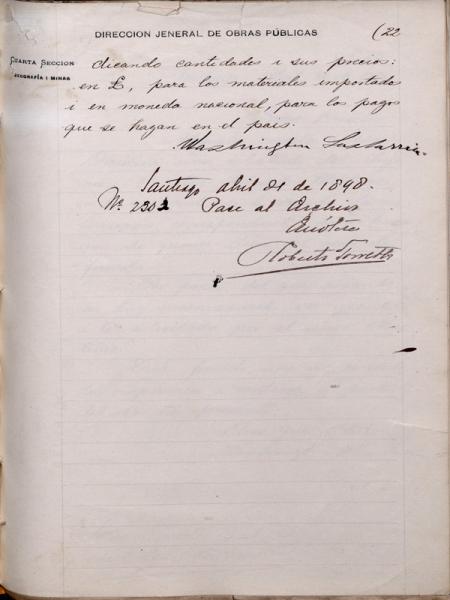 DIRECCION JENERAL DE OBRAS PÚBLICAS
(22
CUARTA SECCION
JEOGRAFÍA I MINAS
dicando cantidades i sus precios:
en £, para los materiales importados
i en moneda nacional, para los pagos
que se hagan en el pais.
Washington Lastarria.
Santiago abril 21 de 1898.
Nº 2302 Pase al Archivo
Anótese
Roberto Torretti